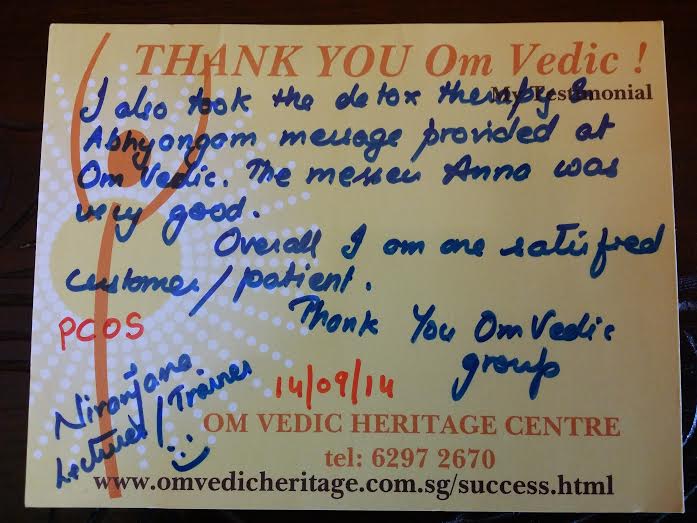 THANK YOU Om Vedic !
My Testimonial
I also took the detox therapy &
Abhyangam message provided at
Om Vedic. The messeu Anna was
very good.
Overall I am one satisfied
customer/patient.
Thank You Om Vedic
group
PCOS
Niranjana
Lecturer/Trainer
14/09/14
OM VEDIC HERITAGE CENTRE
tel: 6297 2670
www.omvedicheritage.com.sg/success.html